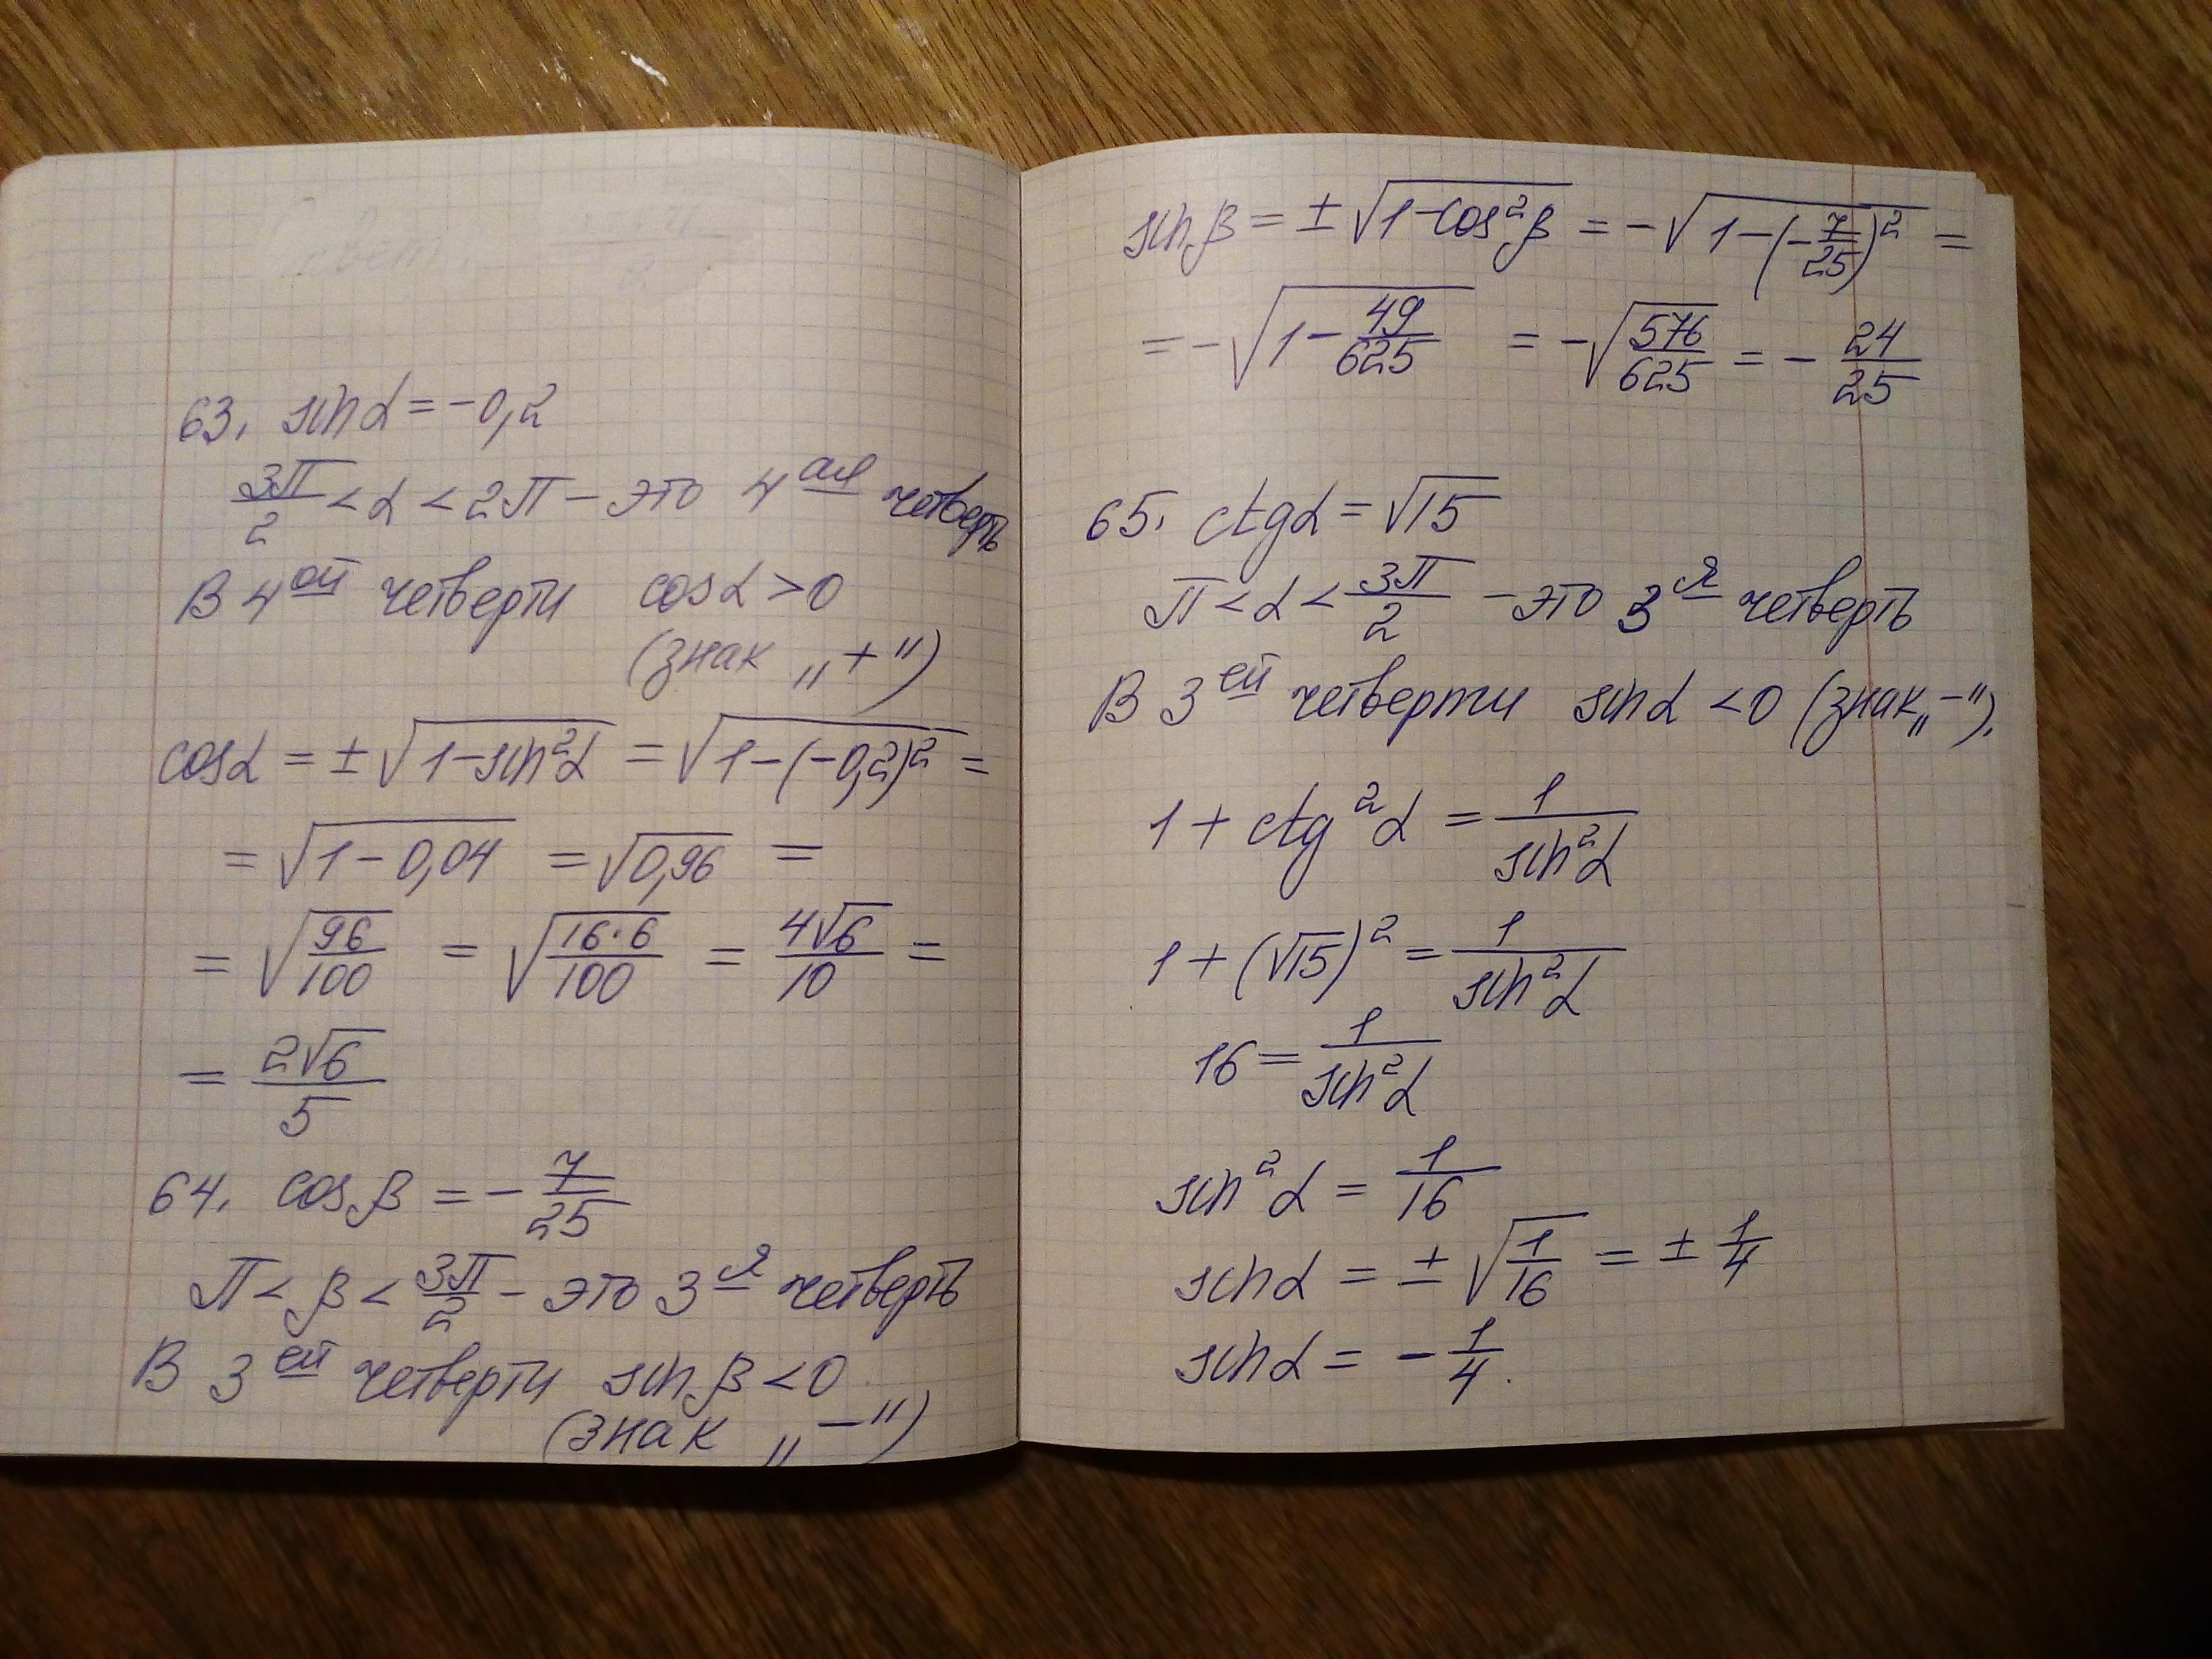 63. sin α = -0,2
3π/2 < α < 2π - это 4ая четверть
В 4ой четверти cos α > 0
(знак „+")
cos α = ± √(1-sin²α) = √(1-(-0,2)²) =
= √(1-0,04) = √0,96 =
= √(96/100) = √(16·6/100) = 4√6/10 =
= 2√6/5
64. cos β = - 7/25
π < β < 3π/2 - это 3я четверть
В 3ей четверти sin β < 0
(знак „-")
sin β = ± √(1-cos²β) = -√(1-(-7/25)²) =
= -√(1-49/625) = -√(576/625) = - 24/25
65. ctg α = √15
π < α < 3π/2 - это 3я четверть
В 3ей четверти sin α < 0 (знак „-").
1 + ctg²α = 1/sin²α
1 + (√15)² = 1/sin²α
16 = 1/sin²α
sin²α = 1/16
sin α = ± √(1/16) = ± 1/4
sin α = - 1/4.